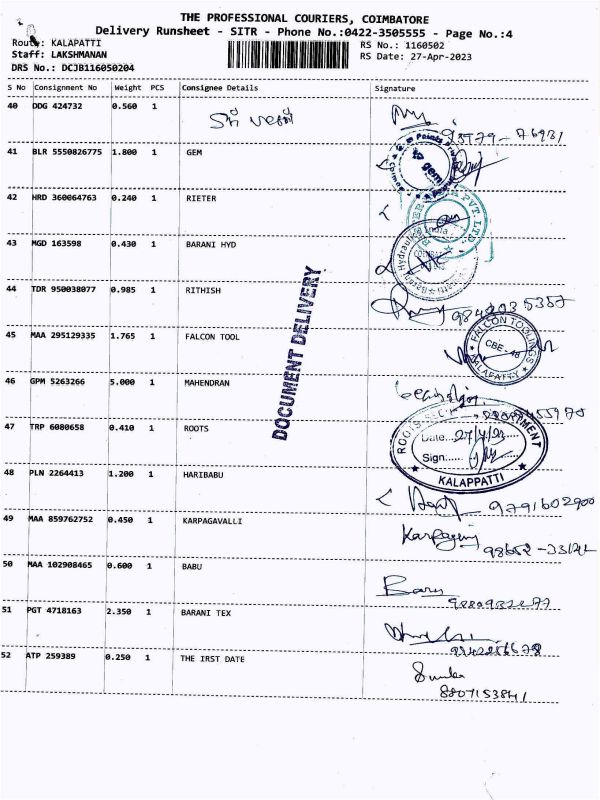 THE PROFESSIONAL COURIERS, COIMBATORE
Delivery Runsheet - SITR - Phone No.:0422-3505555 - Page No.:4
Route: KALAPATTI RS No.: 1160502
Staff: LAKSHMANAN RS Date: 27-Apr-2023
DRS No.: DCJB116050204
S No Consignment No Weight PCS Consignee Details Signature
40 DDG 424732 0.560 1
41 BLR 5550826775 1.800 1 GEM
42 HRD 360064763 0.240 1 RIETER
43 MGD 163598 0.430 1 BARANI HYD
44 TDR 950038077 0.985 1 RITHISH
DOCUMENT DELIVERY
45 MAA 295129335 1.765 1 FALCON TOOL
FALCON TOOLINGS
CBE - 48
46 GPM 5263266 5.000 1 MAHENDRAN
47 TRP 6080658 0.410 1 ROOTS
Date...27/4/23
Sign
KALAPPATTI
48 PLN 2264413 1.200 1 HARIBABU 9791602900
49 MAA 859762752 0.450 1 KARPAGAVALLI
50 MAA 102908465 0.600 1 BABU
51 PGT 4718163 2.350 1 BARANI TEX
52 ATP 259389 0.250 1 THE IRST DATE